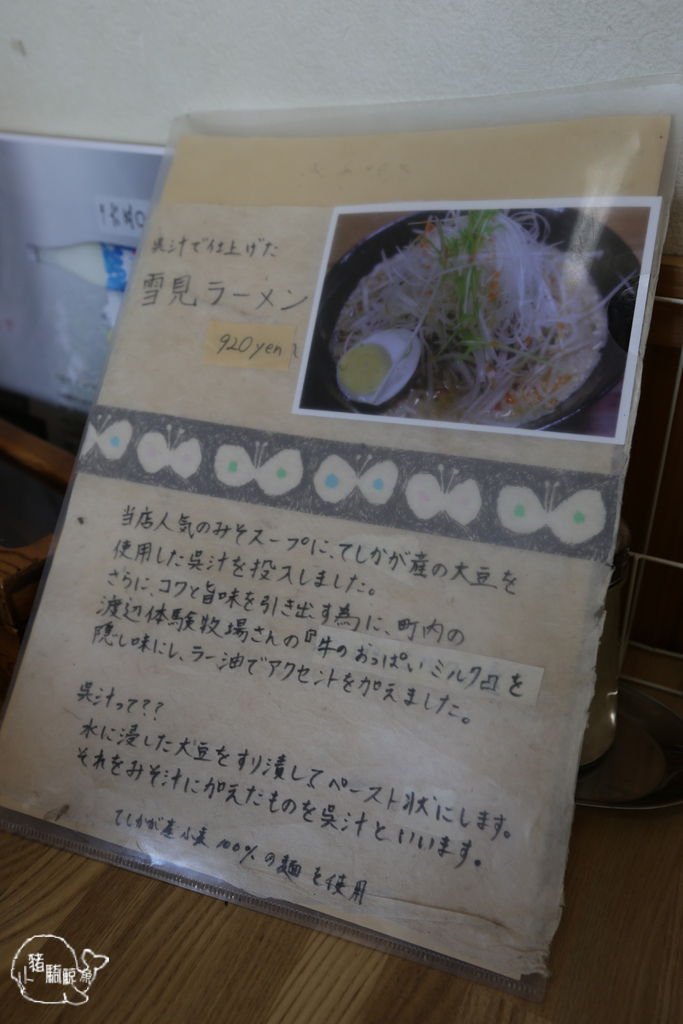 呉汁で仕上げた
雪見ラーメン
920yen
当店人気のみそスープに、てしかが産の大豆を
使用した呉汁を投入しました。
さらに、コクと旨味を引き出す為に、町内の
渡辺体験牧場さんの『牛のおっぱいミルク』を
隠し味にし、ラー油でアクセントを加えました。
呉汁って??
水に浸した大豆をすり潰してペースト状にします。
それをみそ汁に加えたものを呉汁といいます。
てしかが産小麦100%の麺を使用
小豬騎鯨魚